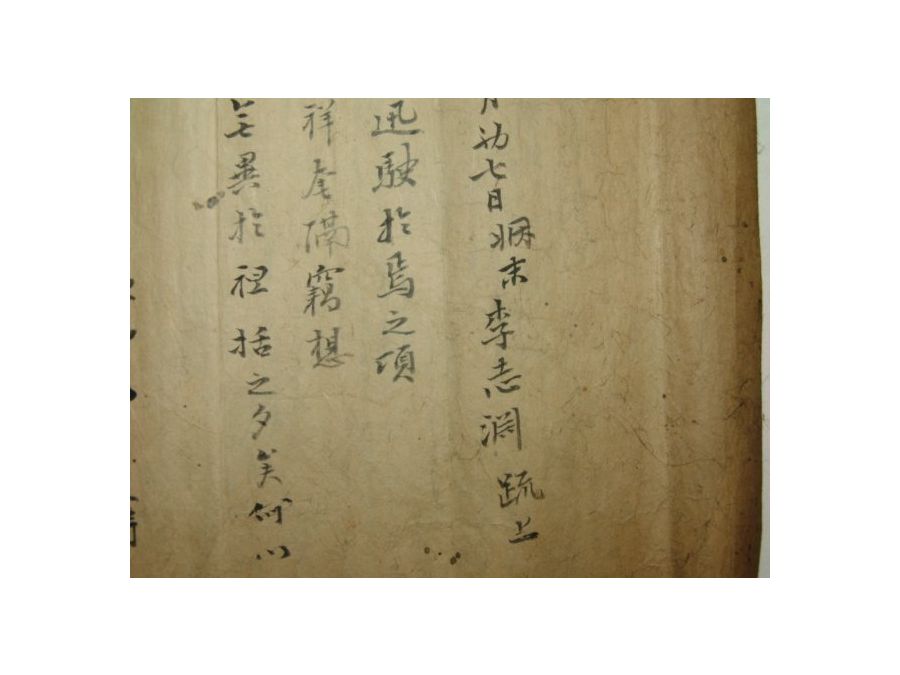 月初七日姻末李志淵疏上
迅駛於焉之頃
祥奄隔竊想
無異於袒括之夕矣何以